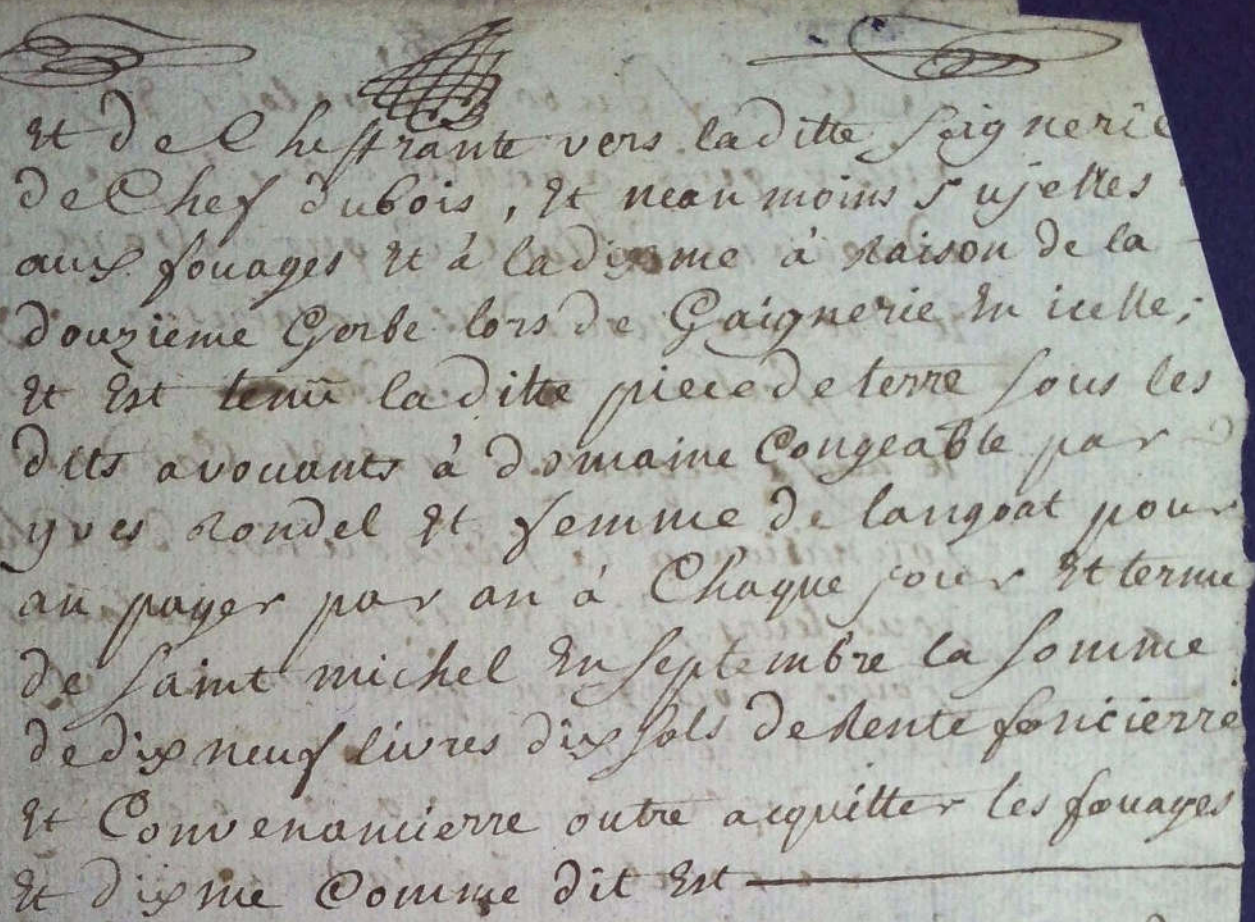 Et de Cheffrante vers la ditte Seignerie
de Chef du bois, Et nean moins Sujettes
aux fouages Et à la dixme à Raison de la
douzieme Gerbe lors de Gaignerie En icelle;
Et Est tenu la ditte piece de terre Sous les
dits avouants à domaine Congeable par
yves Rondel Et femme de langoat pour
en payer par an à Chaque jour Et terme
de Saint michel En Septembre la Somme
de dix neuf livres dix Sols de Rente foncierre
Et Convenancierre outre acquitter les fouages
Et dixme Comme dit Est